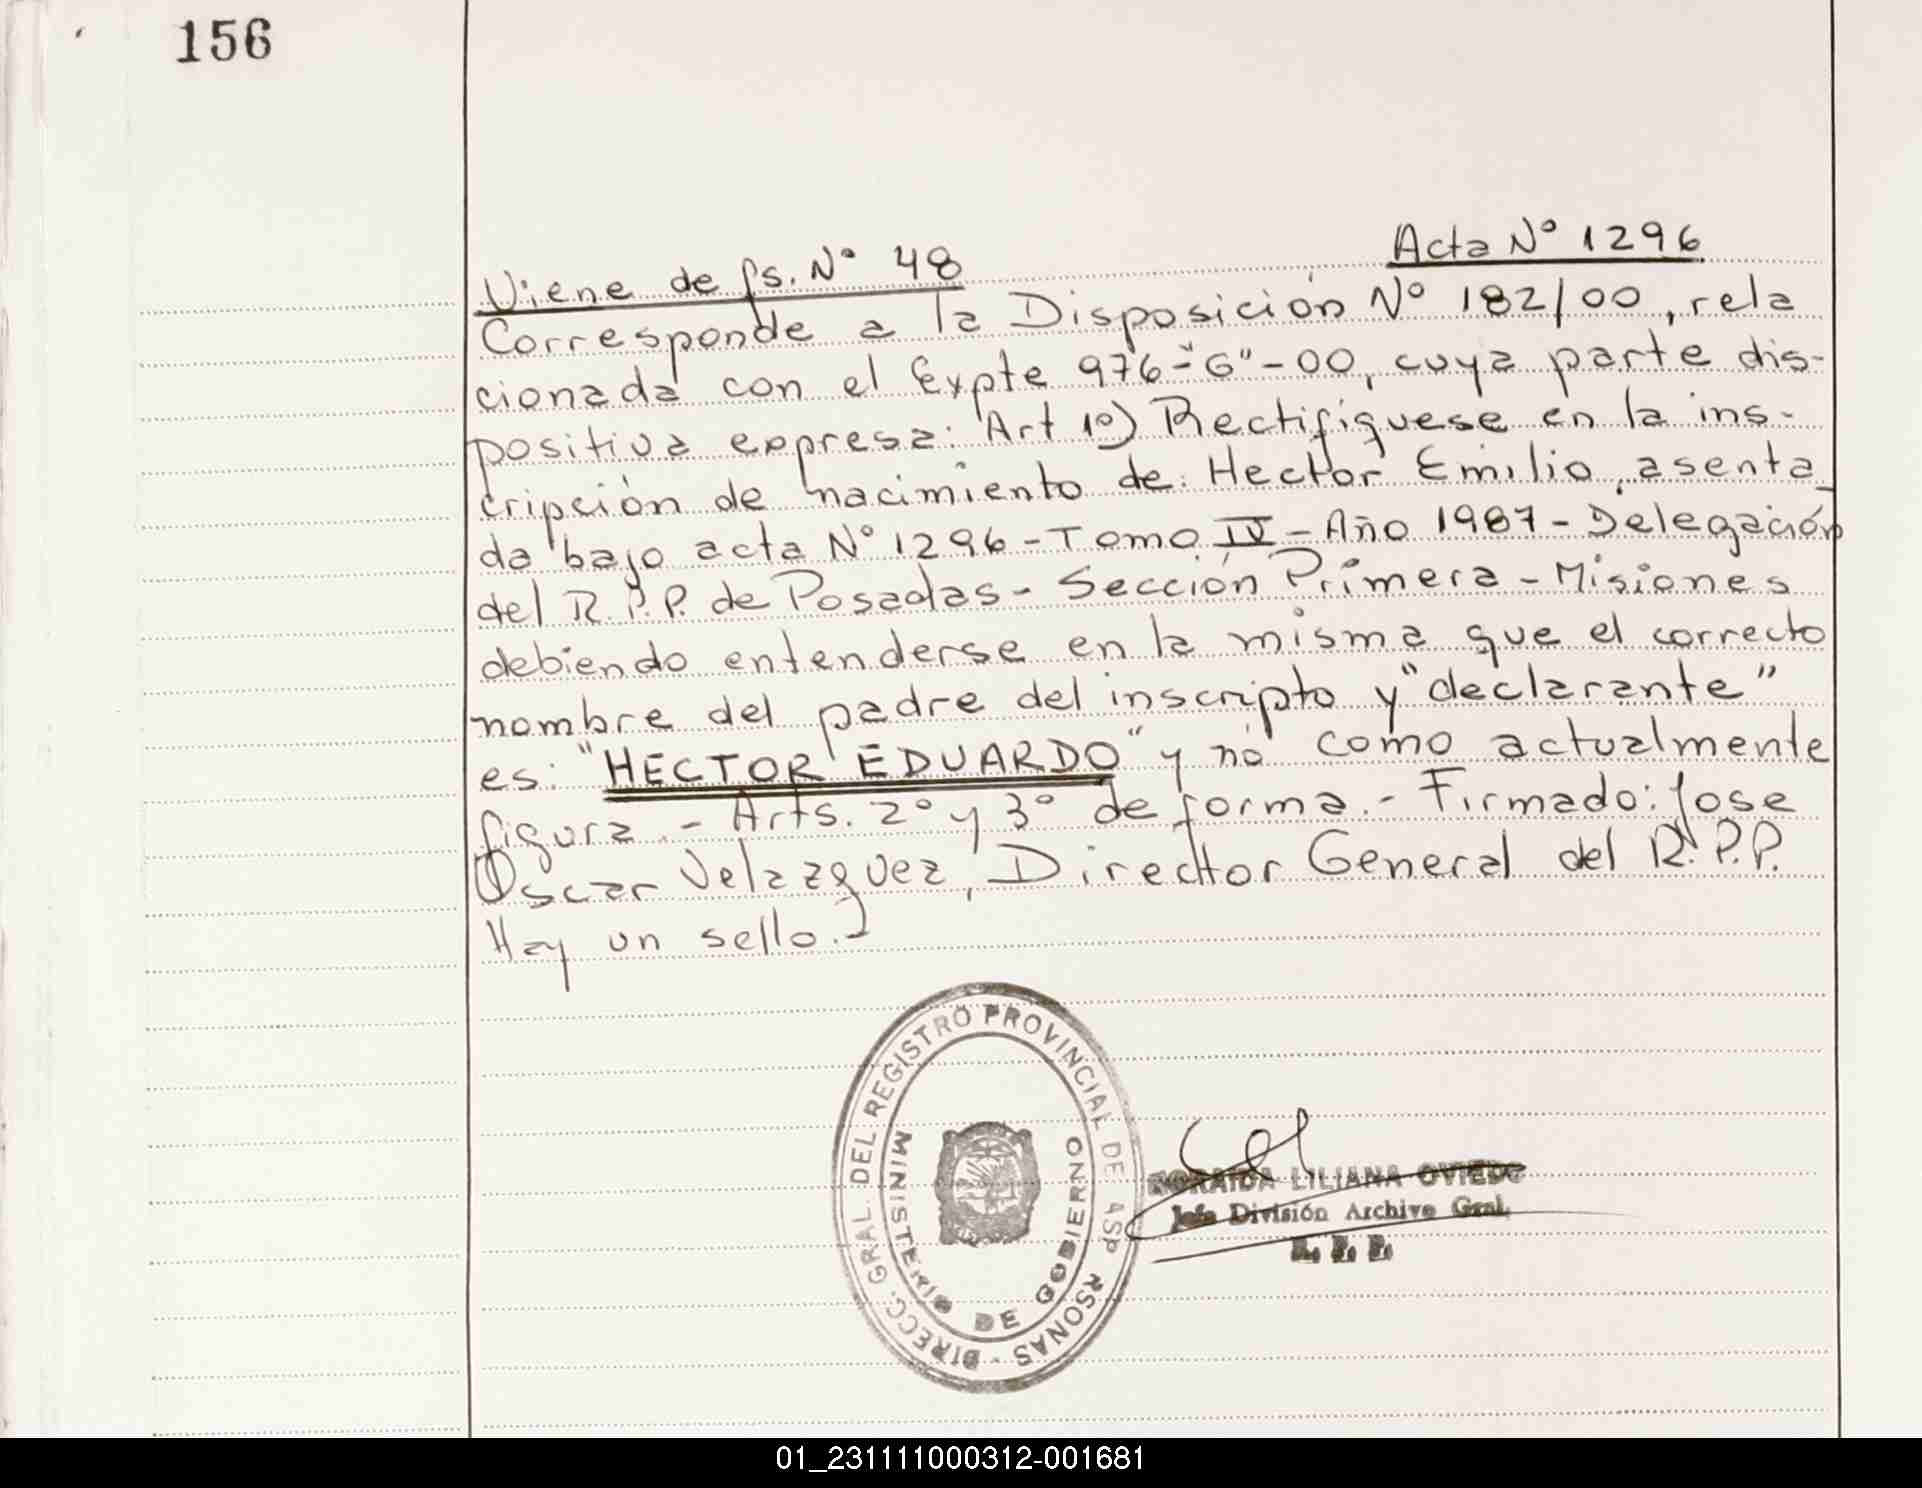 156
Acta Nº 1296
Viene de fs. Nº 48
Corresponde a la Disposición Nº 182/00, rela
cionada con el Expte 976-"G"-00, cuya parte dis-
positiva expresa: Art 1º) Rectifíquese en la ins-
cripción de nacimiento de: Hector Emilio, asenta_
da bajo acta Nº 1296-Tomo IV-Año 1987-Delegación
del R.P.P. de Posadas-Sección Primera-Misiones
debiendo entenderse en la misma que el correcto
nombre del padre del inscripto y "declarante"
es: "HECTOR EDUARDO" y no como actualmente
figura.- Arts. 2º y 3º de forma.- Firmado: Jose
Oscar Velazquez, Director General del R.P.P.
Hay un sello.-
DIRECC. GRAL. DEL REGISTRO PROVINCIAL DE ASP RSONAS -
MINISTERIO DE GOBIERNO
ZORAIDA LILIANA OVIEDO
Jefe División Archivo Gral.
R. P. P.
01_231111000312-001681